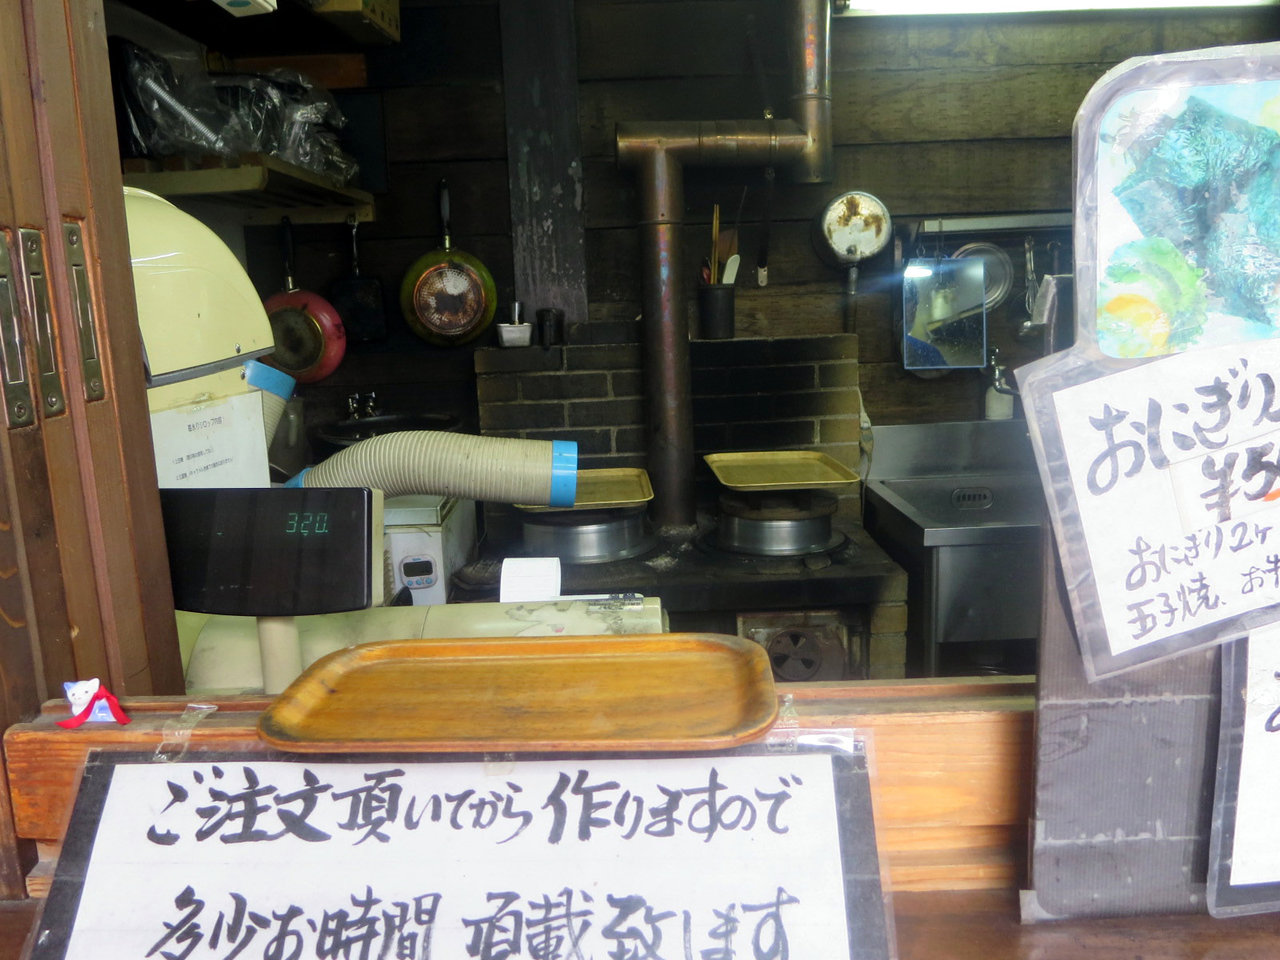 320.
おにぎり
¥5
おにぎり2ヶ
玉子焼、お
ご注文頂いてから作りますので
多少お時間 頂載致します